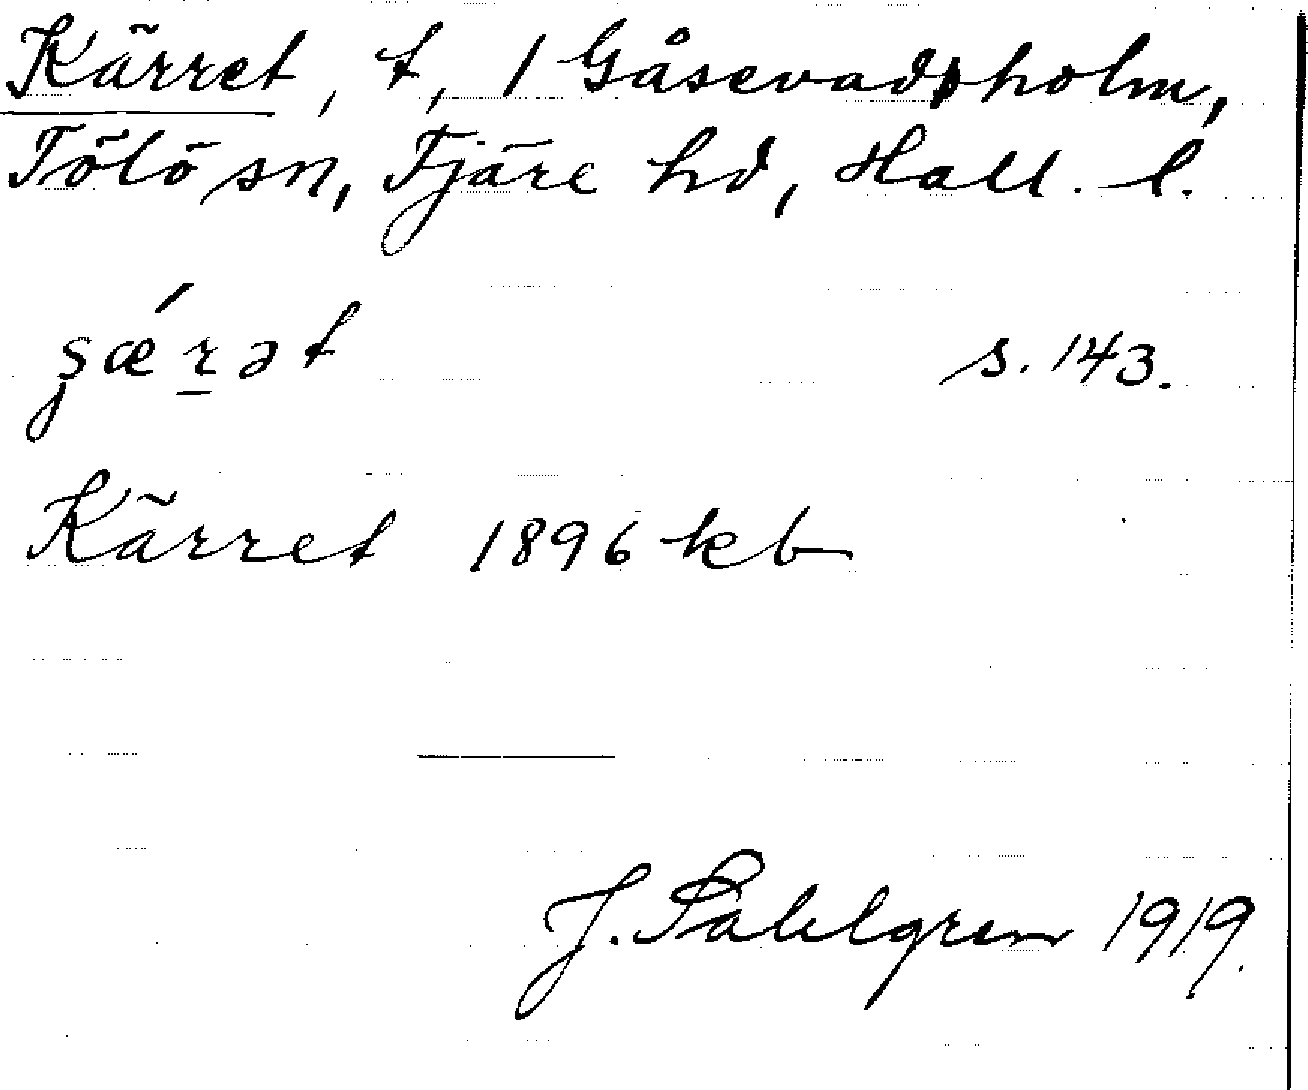 Kärret, t, 1 Gåsevadsholm,
Tölö sn, Fjäre hd, Hall. l.
s. 143.
Kärret 1896 kb
J. Sahlgren 1919.